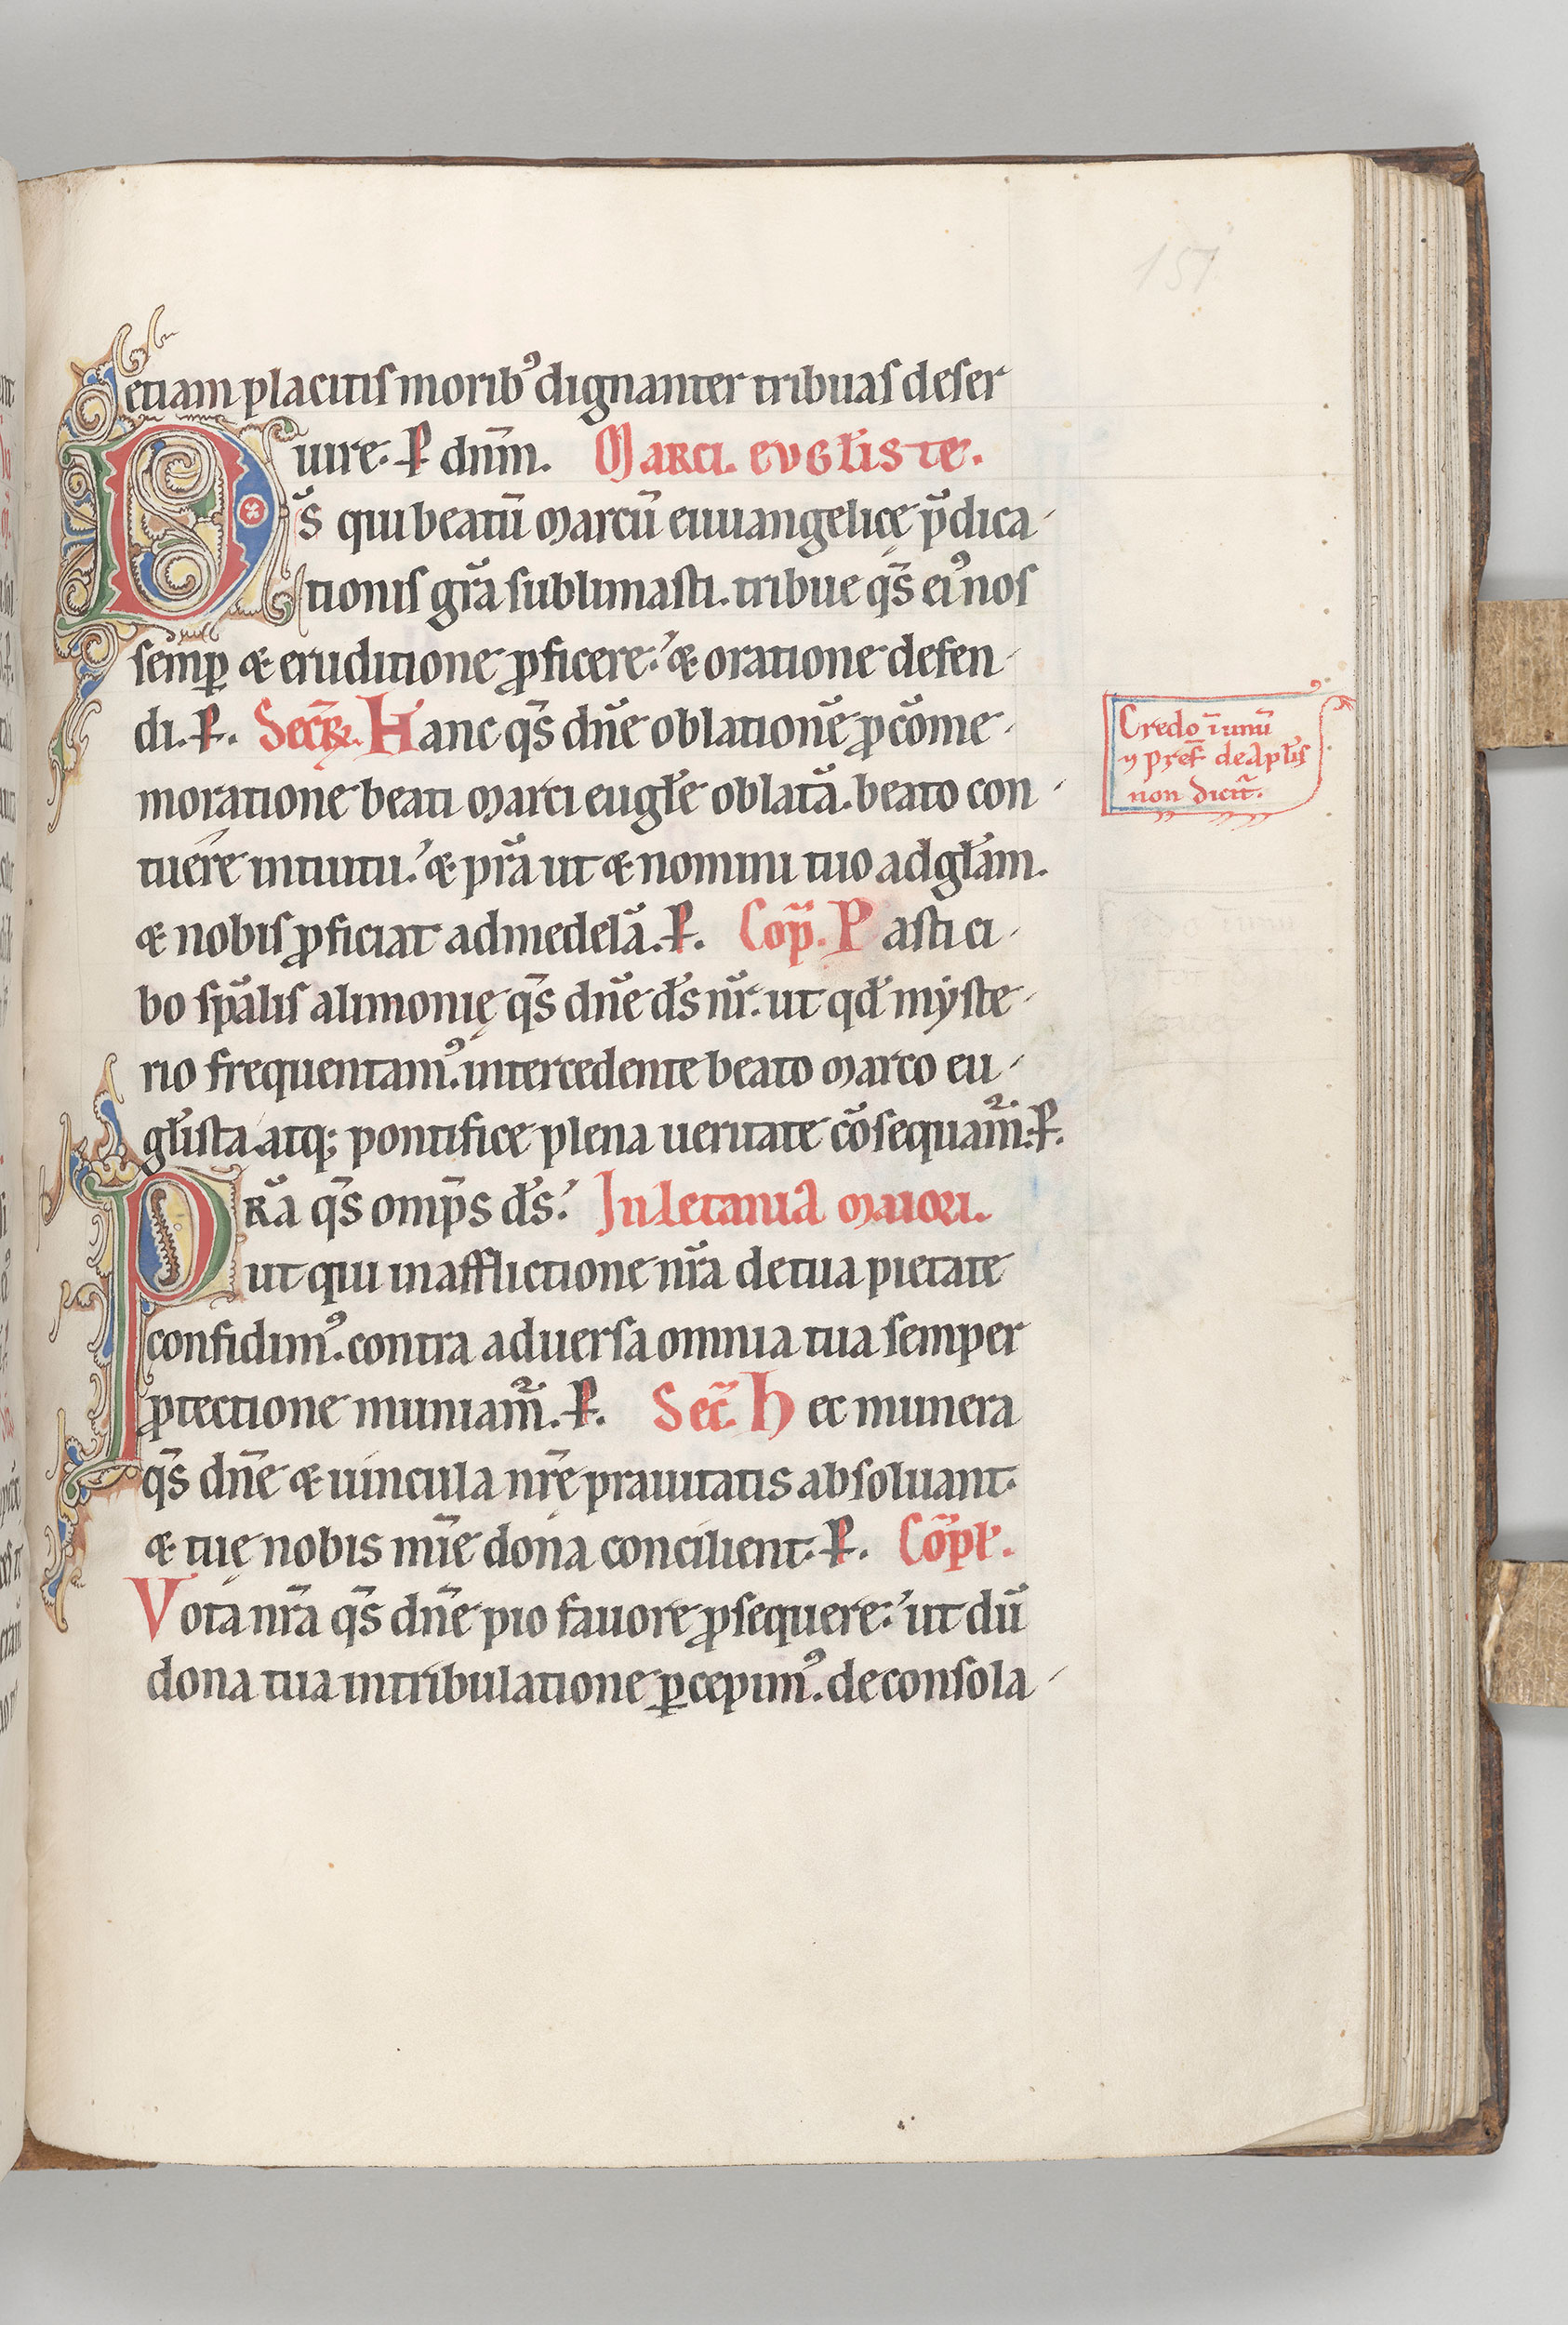 151
etiam placitis morib᾽ dignanter tribuas deser
uire. P̵ dn̄m. Marci. evgl̄iste.
D s̄ qui beatū Marcū euuangelicę p̄dica-
tionis grā sublimasti. tribue qs̄ ei᾽ nos
semꝑ & eruditione ꝓficere. & oratione defen-
di. P̵. Secr̄. Hanc qs̄ dn̄e oblationē ꝓ cōme-
moratione beati Marci eugl̄e oblatā. beato con-
tuere intuitu. & p̄ra ut & nomini tuo ad gl̄am.
& nobis ꝓficiat ad medelā. P̵. Cop̄. Pasti ci-
bo sp̄alis alimonię qs̄ dn̄e d̄s nr̄. ut qd̄ myste-
rio frequentam᾽. intercedente beato Marco eu-
gl̄ista atq; pontifice plena ueritate cōsequam̄. P̵.
P Rā qs̄ omp̄s d̄s. In Letania Maiori.
ut qui in afflictione nr̄a de tua pietate
confidim᾽. contra aduersa omnia tua semper
ꝓtectione muniam̄. P̵. Sec̄. Hec munera
qs̄ dn̄e & uincula nr̄ę prauitatis absoluant.
& tuę nobis mīe dona concilient. P̵. Cōpl̄.
Vota nr̄a qs̄ dn̄e pio fauore ꝓsequere. ut dū
dona tua in tribulatione ꝑcepim᾽. de consola-
Credo ī unū
⁊ pref̄ de ap̄lis
non dicit̄.